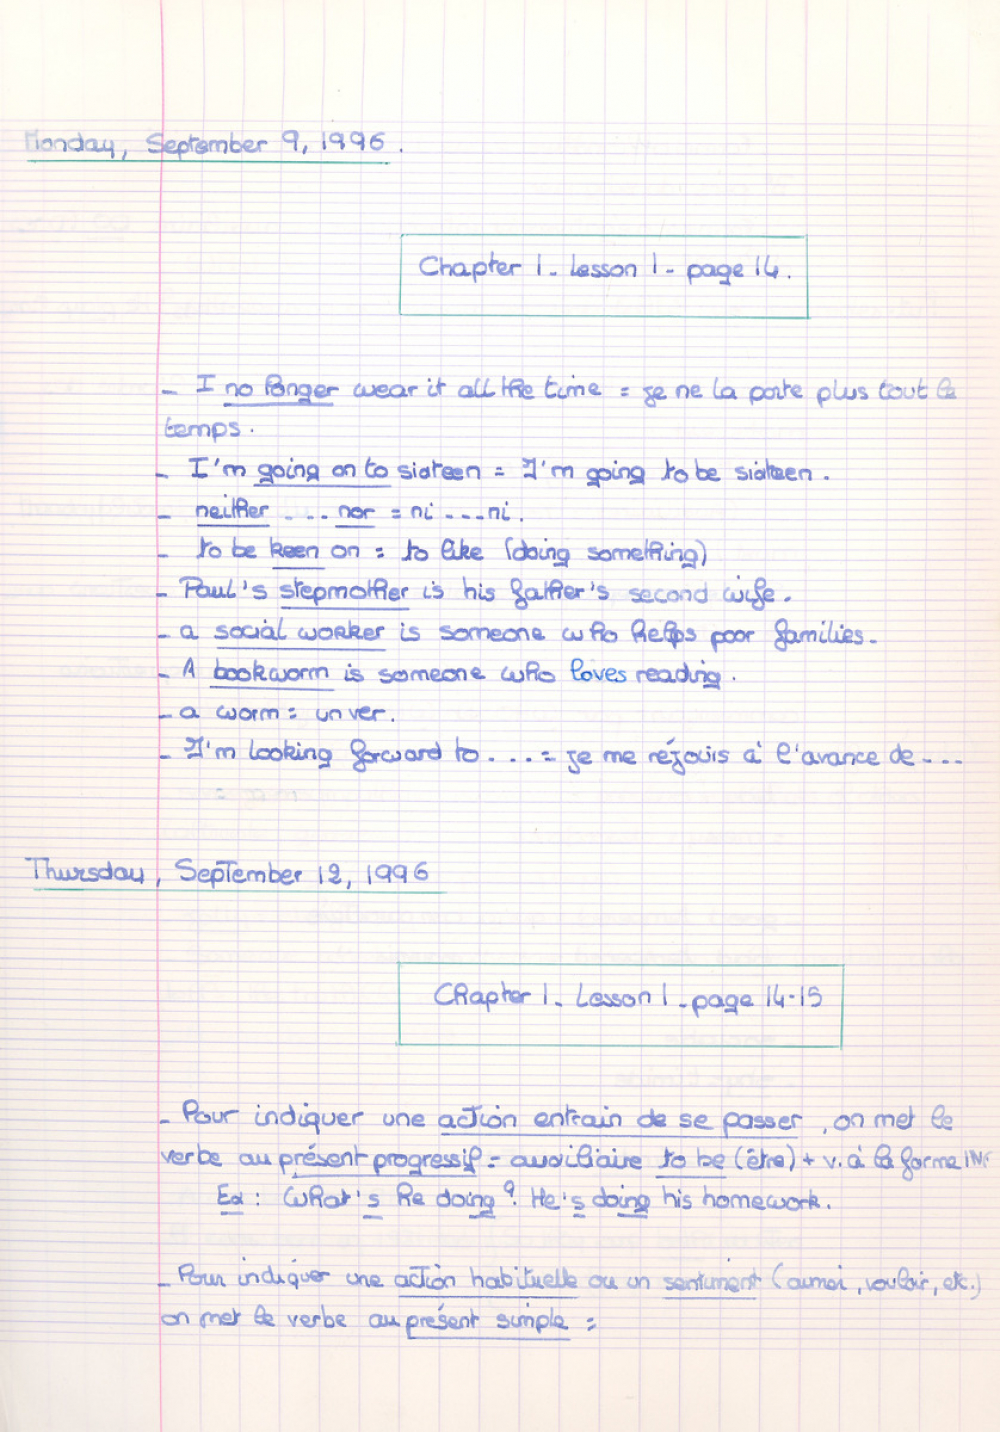 Monday, September 9, 1996.
Chapter 1 - Lesson 1 - page 14.
- I no longer wear it all the time = je ne la porte plus tout le
temps.
- I'm going on to sixteen = I'm going to be sixteen.
- neither ... nor = ni ... ni.
- to be keen on = to like (doing something)
- Paul's stepmother is his father's second wife.
- a social worker is someone who helps poor families.
- A bookworm is someone who loves reading.
- a worm = un ver.
- I'm looking forward to ... = je me réjouis à l'avance de ...
Thursday, September 12, 1996
Chapter 1 - Lesson 1 - page 14-15
- Pour indiquer une action entrain de se passer, on met le
verbe au présent progressif = auxiliaire to be (être) + v. à la forme ING
Ex : What's he doing ? He's doing his homework.
- Pour indiquer une action habituelle ou un sentiment (aimer, vouloir, etc.)
on met le verbe au présent simple :